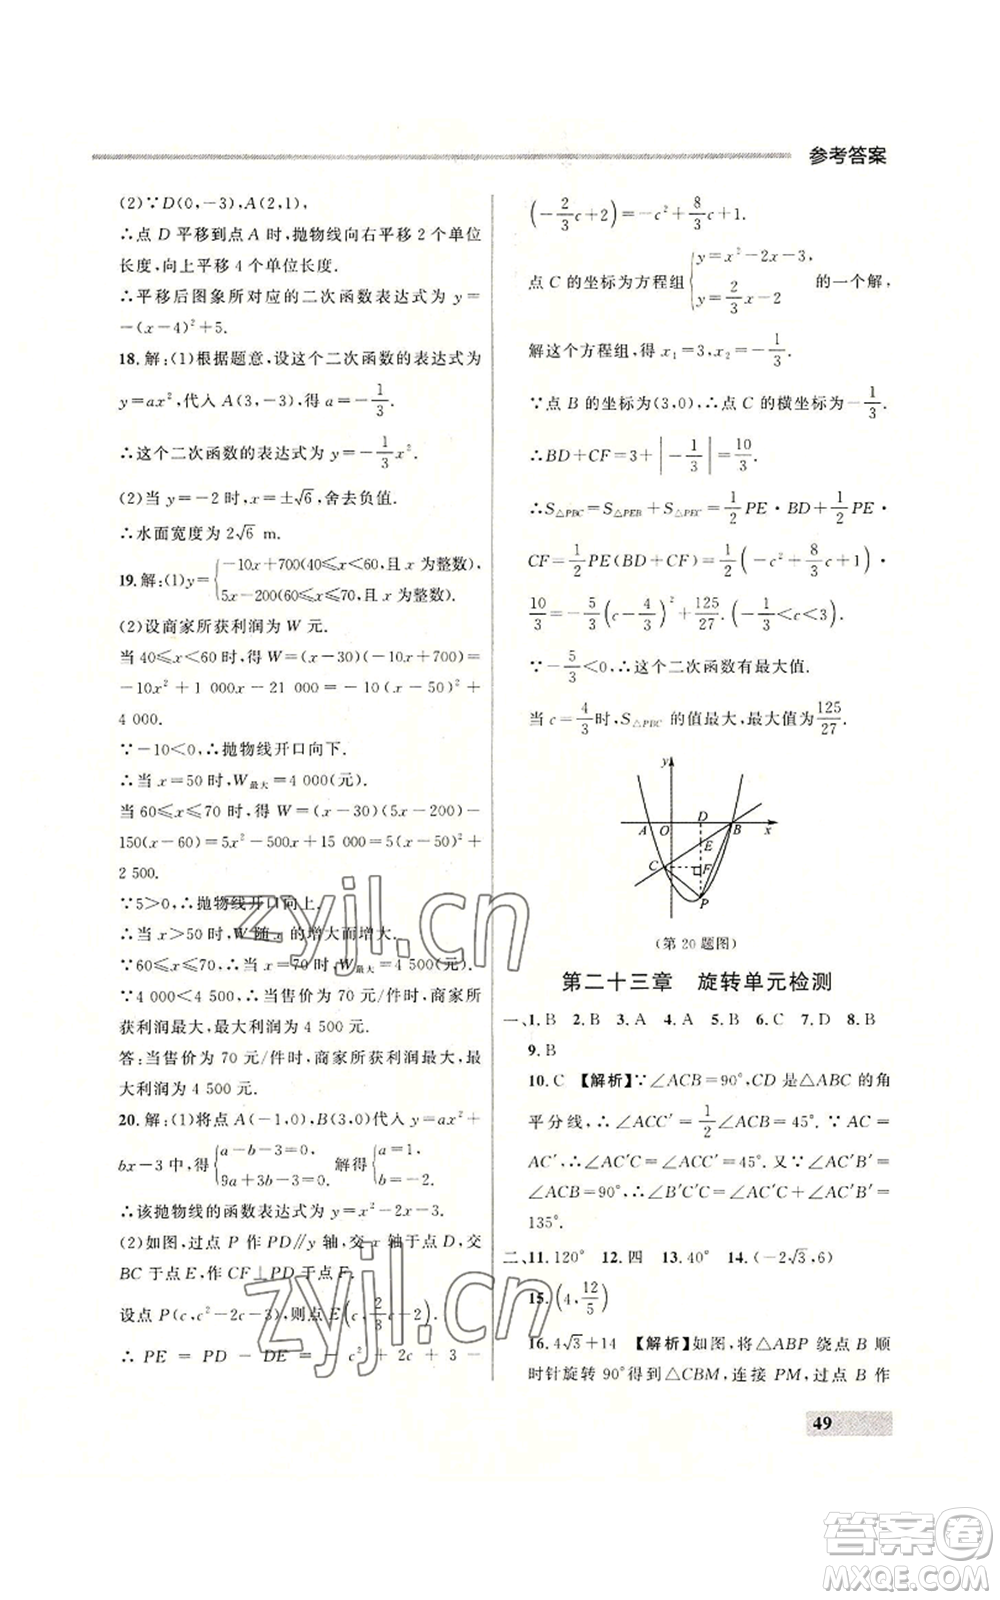 参考答案
(2)∵D(0,-3),A(2,1),
∴点 D 平移到点 A 时,抛物线向右平移 2 个单位
长度,向上平移 4 个单位长度.
∴平移后图象所对应的二次函数表达式为 y=
-(x-4)²+5.
18.解:(1)根据题意,设这个二次函数的表达式为
y=ax²,代入 A(3,-3),得 a=-1/3.
∴这个二次函数的表达式为 y=-1/3x².
(2)当 y=-2 时,x=±√6,舍去负值.
∴水面宽度为 2√6 m.
19.解:(1)y={-10x+700(40≤x<60,且 x 为整数),
5x-200(60≤x≤70,且 x 为整数).
(2)设商家所获利润为 W 元.
当 40≤x<60 时,得 W=(x-30)(-10x+700)=
-10x²+1 000x-21 000=-10(x-50)²+
4 000.
∵-10<0,∴抛物线开口向下.
∴当 x=50 时,W最大=4 000(元).
当 60≤x≤70 时,得 W=(x-30)(5x-200)-
150(x-60)=5x²-500x+15 000=5(x-50)²+
2 500.
∵5>0,∴抛物线开口向上.
∴当 x>50 时,W 随 x 的增大而增大.
∵60≤x≤70,∴当 x=70 时,W最大=4 500(元).
∵4 000<4 500,∴当售价为 70 元/件时,商家所
获利润最大,最大利润为 4 500 元.
答:当售价为 70 元/件时,商家所获利润最大,最
大利润为 4 500 元.
20.解:(1)将点 A(-1,0),B(3,0)代入 y=ax²+
bx-3 中,得{a-b-3=0, 9a+3b-3=0. 解得{a=1, b=-2.
∴该抛物线的函数表达式为 y=x²-2x-3.
(2)如图,过点 P 作 PD∥y 轴,交 x 轴于点 D,交
BC于点 E,作 CF⊥PD 于点 F,
设点 P(c,c²-2c-3),则点 E(c,2/3c-2).
∴ PE = PD - DE = - c² + 2c + 3 -
(-2/3c+2)=-c²+8/3c+1.
点 C 的坐标为方程组{y=x²-2x-3, y=2/3x-2 的一个解,
解这个方程组,得 x₁=3,x₂=-1/3.
∵点 B 的坐标为(3,0),∴点 C 的横坐标为-1/3.
∴BD+CF=3+|-1/3|=10/3.
∴S△PBC=S△PEB+S△PEC=1/2PE·BD+1/2PE·
CF=1/2PE(BD+CF)=1/2(-c²+8/3c+1)·
10/3=-5/3(c-4/3)²+125/27.(-1/3<c<3).
∵-5/3<0,∴这个二次函数有最大值.
当 c=4/3时,S△PBC 的值最大,最大值为125/27.
y
A O D B x
E
C F
P
(第 20 题图)
第二十三章 旋转单元检测
一、1.B 2.B 3.A 4.A 5.B 6.C 7.D 8.B
9.B
10.C 【解析】∵∠ACB=90°,CD 是△ABC 的角
平分线,∴∠ACC′=1/2∠ACB=45°.∵AC=
AC′,∴∠AC′C=∠ACC′=45°.又∵∠AC′B′=
∠ACB=90°,∴∠B′C′C=∠AC′C+∠AC′B′=
135°.
二、11.120° 12.四 13.40° 14.(-2√3,6)
15.(4,12/5)
16.4√3+14 【解析】如图,将△ABP 绕点 B 顺
时针旋转 90°得到△CBM,连接 PM,过点 B 作
49
zyjl.cn
zyjl.cn
答案圈
MXQE.COM